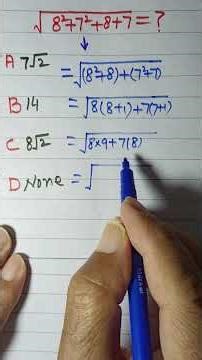 √8²+7²+8+7 = ?
A 7√2 = √(8²+8)+(7²+7)
B 14 = √8(8+1)+7(7+1)
C 8√2 = √8×9+7(8)
D None = √